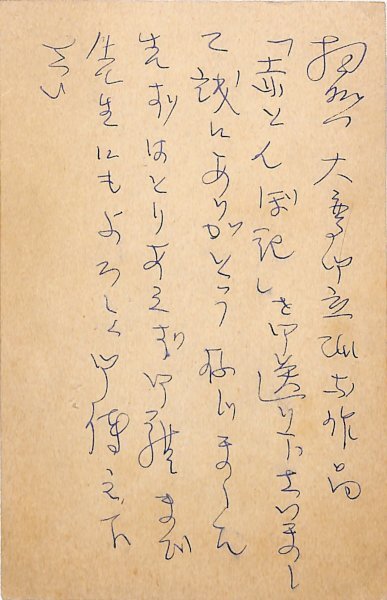 拝啓 大変御立派な作品
「赤とんぼ記」を御送り下さいまし
て誠にありがとう存じました
先ずはとりあえず御禮まで
先生にもよろしく御傳え下
さい